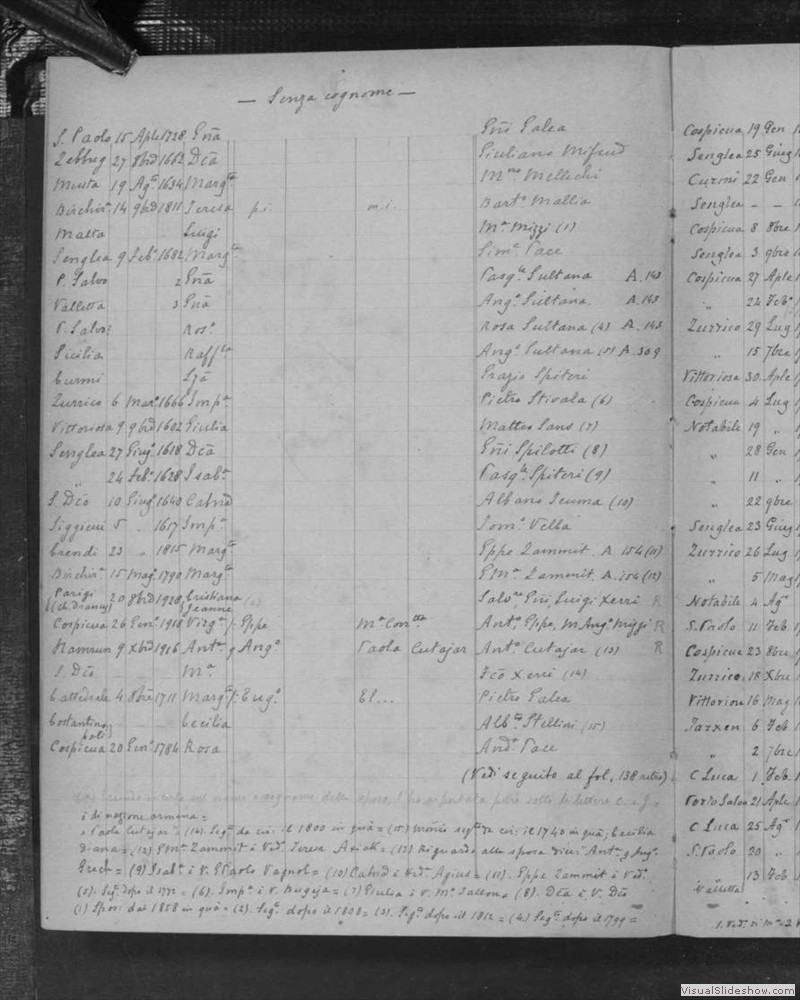 — Senza cognome —
S. Paolo 15 Aple 1728 Gnã Gñi Galea
Zebbug 27 8bre 1662 Dcã Giuliano Mifsud
Musta 19 Agº 1634 Margta Mro Mellechi
Birchirª 14 9bre 1811 Teresa p.i. m.i. Bartº Mallia
Malta Luigi Mª Mizzi (1)
Senglea 9 Febº 1682 Margta Simº Pace
P. Salvo 2 Gnã Pasqle Sultana A. 143
Valletta 3 Gnã Angº Sultana A. 143
P. Salvo Rosª Rosa Sultana (4) A. 143
Sicilia Raffla Angº Sultana (5) A 309
Curmi Grazio Spiteri
Zurrico 6 Marº 1666 Impª Pietro Stivala (6)
Vittoriosa 9 9bre 1602 Giulia Matteo Sans (7)
Senglea 27 Giugº 1618 Dcã Gñi Spilotti (8)
" 24 Febº 1628 Isabª Pasqle Spiteri (9)
S. Dcõ 10 Giugº 1640 Catnd Albano Scuma (10)
Siggieui 5 " 1617 Impª Domº Vella
Crendi 23 " 1815 Margta Gppe Zammit A 154 (11)
Birchirª 15 Magº 1790 Margta Emª Zammit A. 154 (12)
Parigi 20 8bre 1920 Cristiana Salvre, Gñi, Luigi Xerri R
Jeanne
Cospicua 26 Genº 1918 Virgª f. Gppe Mª Contta Antº, Gppe, M Angº Mizzi R
Hamrun 9 Xbre 1916 Antª g Angº Paola Cutajar Antº Cutajar (13) R
S. Dcõ Mª Fcõ Xerri (14)
Cattedrale 4 8bre 1711 Margta f. Eugº El... Pietro Galea
Costantinopoli Cecilia Albto Stellini (15)
Cospicua 20 Genº 1784 Rosa Andª Pace
(Vedi seguito al fol. 138 retro)
è di nazione armena =
Paola Cutajar = (14). Segª da cui: il 1800 in quà = (15) il 1740 in quà; Cecilia
Diana = (12) Emª Zammit è Vedª Teresa = (13) Riguardo alla sposa dici Antª g Angº
Grech = (9) Isabª è V. Paolo = (10) Catnd è Vedª Agius = (11). Gppe Zammit è Vedº
(5). Segª dopo il 1772 = (6). Impª è v. Bugeja = (7) Giulia è v. Mº = (8). Dcã è V. Dcõ
(1) Sposi dal 1858 in quà = (2). Segª dopo il 1808 = (3). Segª dopo il 1812 = (4) Segª dopo il 1799 =
Cospicua 19 Gen
Senglea 25 Giug
Curmi 22 Gen
Senglea – –
Cospicua 8 8bre
Senglea 3 9bre
Cospicua 27 Aple
" 24 Febº
Zurrico 29 Lug
" 15 7bre
Vittoriosa 30 Aple
Cospicua 4 Lug
Notabile 19 "
" 28 Gen
" 11 "
" 22 9bre
Senglea 23 Giug
Zurrico 26 Lug
" 5 Mag
Notabile 4 Agº
S. Paolo 11 Feb
Cospicua 23 8bre
Zurrico 18 Xbre
Vittoriosa 16 Mag
Tarxen 6 Feb
" 2 7bre
C Luca 1 Feb
Porto Salvo 21 Aple
C Luca 25 Agº
S. Paolo 20 "
Valletta 13 Feb
VisualSlideshow.com